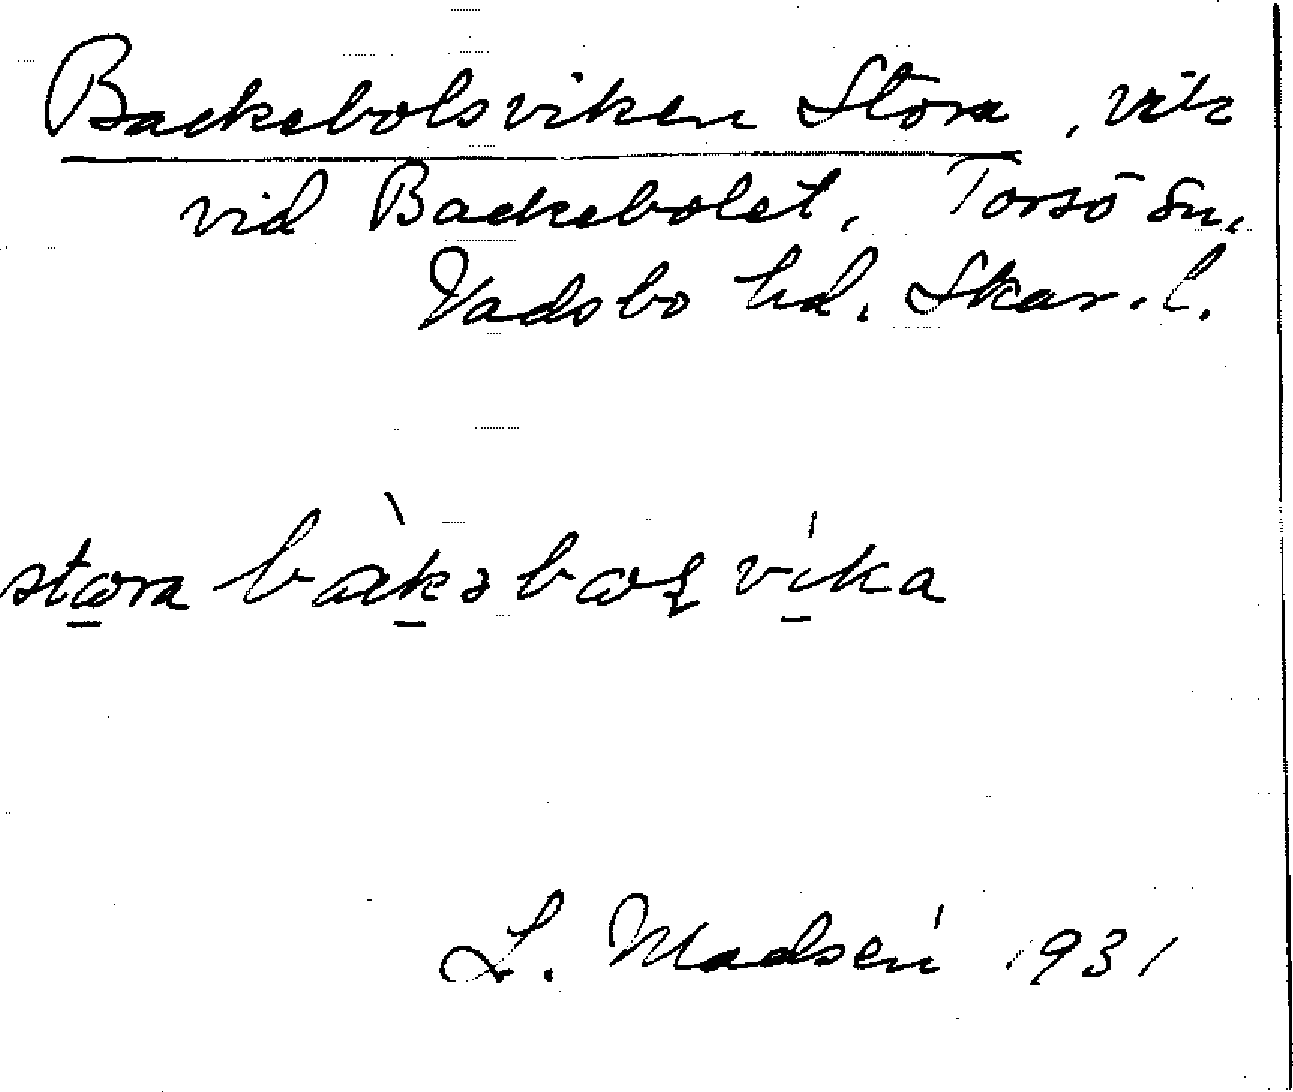 Backebolsviken Stora, vik
vid Backebolet, Torsö sn,
Vadsbo hd, Skar. l.
stora bàkəboɽ víka
L. Madsén 1931